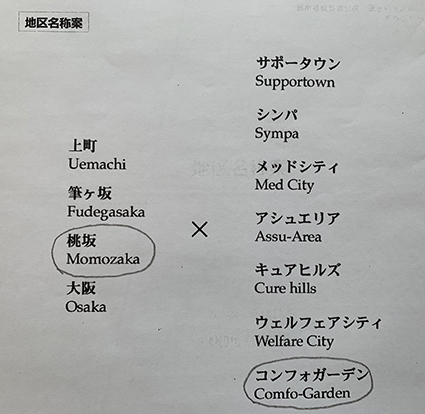 地区名称案
上町
Uemachi
筆ヶ坂
Fudegasaka
桃坂
Momozaka
大阪
Osaka
×
サポータウン
Supportown
シンパ
Sympa
メッドシティ
Med City
アシュエリア
Assu-Area
キュアヒルズ
Cure hills
ウェルフェアシティ
Welfare City
コンフォガーデン
Comfo-Garden